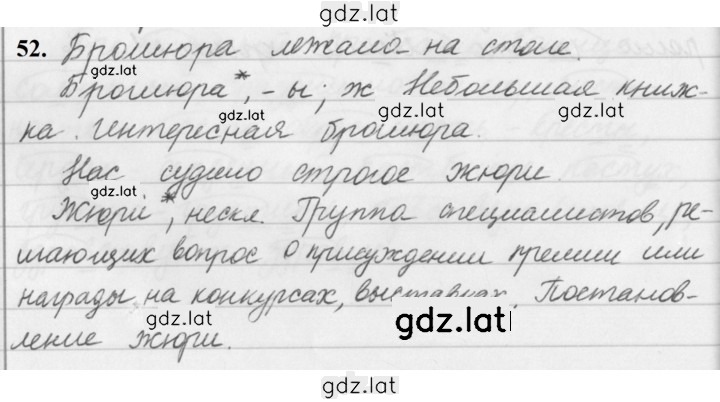 gdz.lat
52. Брошюра лежала на столе.
gdz.lat
Брошюра*, -ы; ж Небольшая книж-
ка. Интересная брошюра.
Нас судило строгое жюри.
gdz.lat
Жюри*, нескл. Группа специалистов, ре-
шающих вопрос о присуждении премии или
награды на конкурсах, выставках. Постанов-
gdz.lat gdz.lat
ление жюри.
gdz.lat